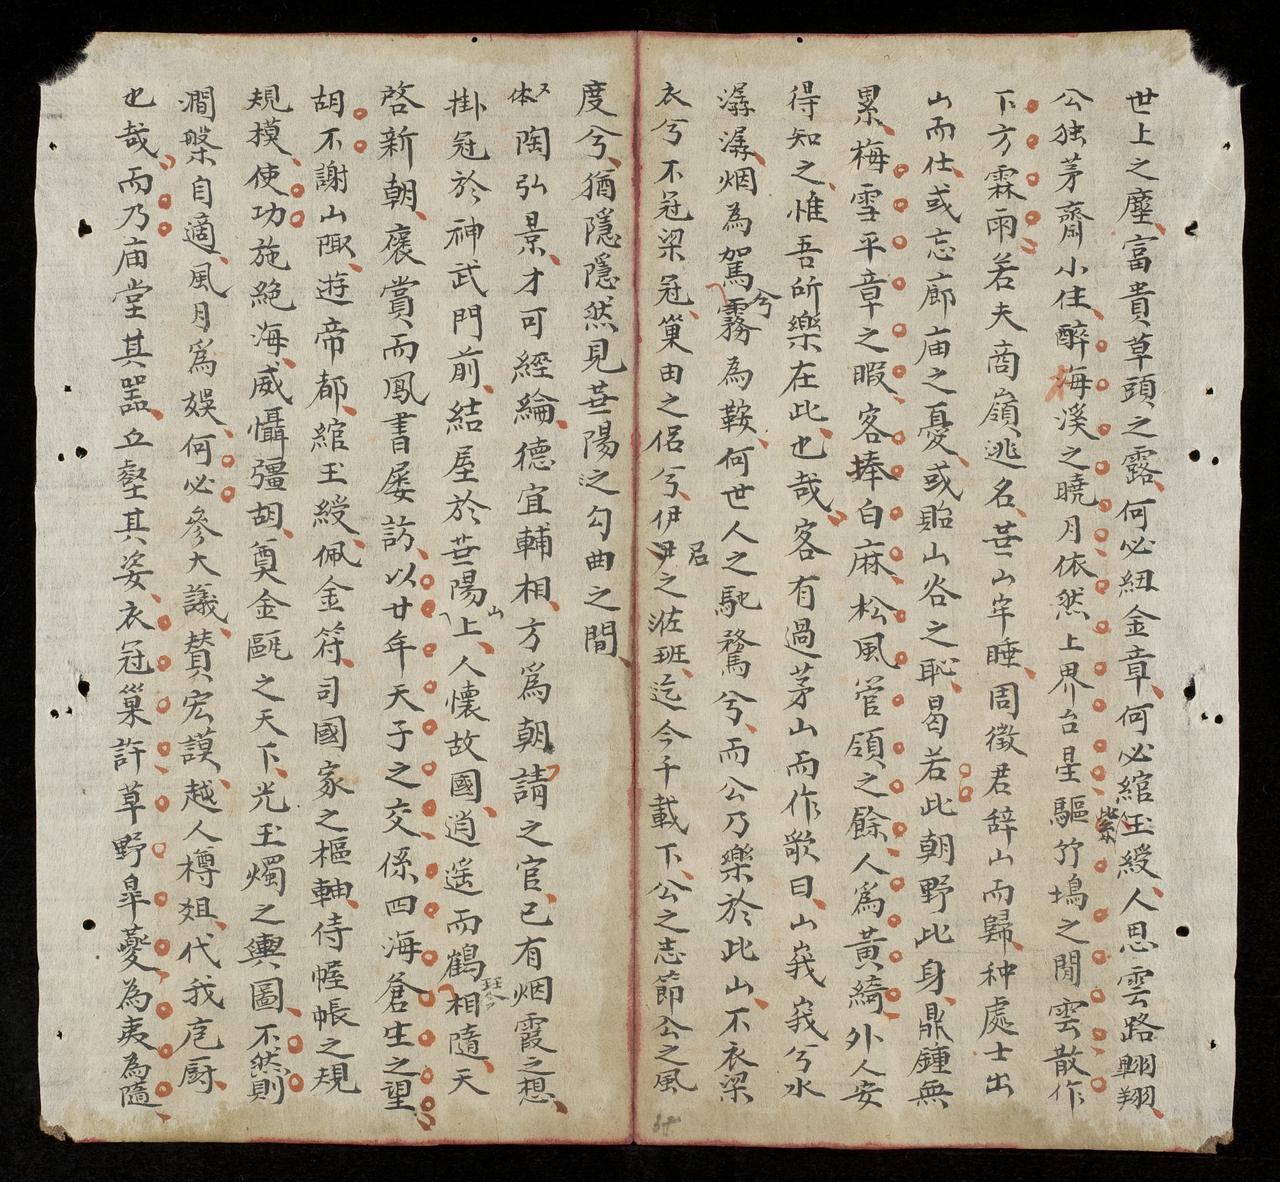 世上之塵富貴草頭之露何必紐金章何必綰玉綬人思雲路翺翔
公独茅齋小住醉海溪之曉月依然上界台星驅竹塢之閒雲散作
下方霖雨若夫商嶺逃名芸山牢睡周徵君辞山而歸种處士出
山而仕或忘廊庙之憂或貽山谷之恥曷若此朝野此身鼎鍾無
累梅雪平章之暇客捧白麻松風管領之餘人爲黃綺外人安
得知之惟吾所樂在此也哉客有過茅山而作歌曰山峩峩兮水
潺潺烟為駕兮霧為鞍何世人之馳騖兮而公乃樂於此山不衣梁
衣兮不冠梁冠巢由之侶兮伊呂之班迄今千載下公之志節公之風
度兮猶隱隱然見芸陽之勾曲之間
又体 陶弘景才可經綸德宜輔相方爲朝請之官已有烟霞之想
掛冠於神武門前結屋於芸陽山上人懷故國逍遥而鶴琴相隨天
啓新朝褒賞而鳳書屡訪以廿年天子之交係四海倉生之望
胡不謝山陬遊帝都綰玉綬佩金符司國家之樞軸侍幄帳之規
規模使功施絶海威懾彊胡奠金甌之天下光玉燭之輿圖不然則
澗槃自適風月爲娱何必參大議賛宏謨越人樽俎代我庖厨
也哉而乃庙堂其噐丘壑其姿衣冠巢許草野皐夔為夷為隨